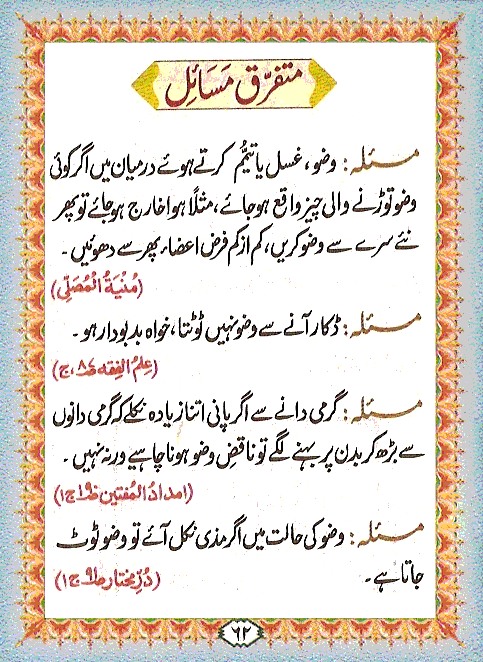 متفرّق مَسَائِل
مسئلہ: وضو، غسل یا تیمُّم کرتے ہوئے درمیان میں اگر کوئی
وضو توڑنے والی چیز واقع ہوجائے، مثلاً ہوا خارج ہوجائے تو پھر
نئے سرے سے وضو کریں، کم از کم فرض اعضاء پھر سے دھوئیں۔
(مُنْیَۃُ الْمُصَلِّی)
مسئلہ: ڈکار آنے سے وضو نہیں ٹوٹتا، خواہ بدبودار ہو۔
(عِلمُ الفِقہ
مسئلہ: گرمی دانے سے اگر پانی اتنا زیادہ نکلے کہ گرمی دانوں
سے بڑھ کر بدن پر بہنے لگے تو ناقضِ وضو ہونا چاہیے ورنہ نہیں۔
(امدادُ المُفتین ص۱۹ ج۱)
مسئلہ: وضو کی حالت میں اگر مذی نکل آئے تو وضو ٹوٹ
جاتا ہے۔ (دُرِّمختار ص۹۱ ج۱)
۶۲